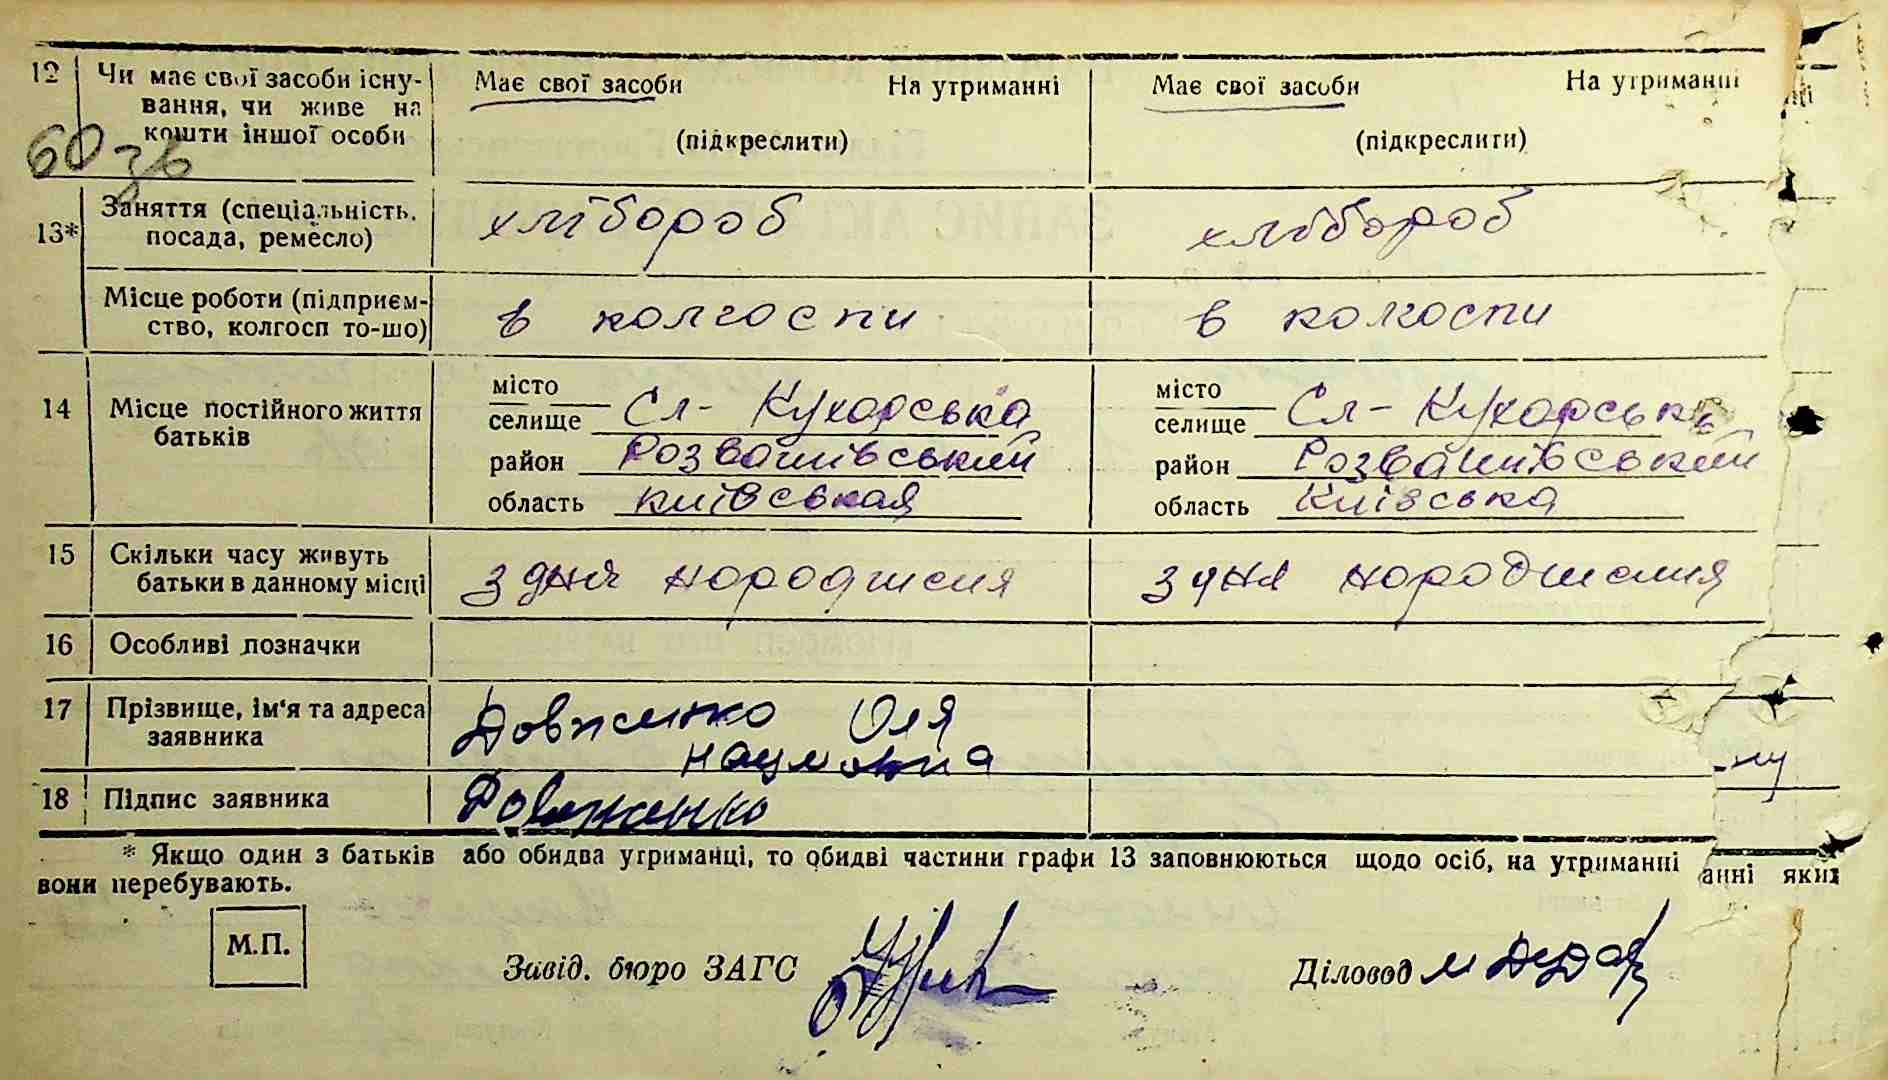 12 Чи має свої засоби існу- Має свої засоби На утриманні Має свої засоби На утриманні
вання, чи живе на
кошти іншої особи (підкреслити) (підкреслити)
60
13* Заняття (спеціальність, хлібороб хлібороб
посада, ремесло)
Місце роботи (підприєм- в колгоспи в колгоспи
ство, колгосп то-що)
14 Місце постійного життя місто місто
батьків селище Сл- Кухарська селище Сл- Кухарська
район Розважівський район Розважівський
область київськая область Київська
15 Скільки часу живуть з дня народження з дня народження
батьки в данному місці
16 Особливі позначки
17 Прізвище, ім'я та адреса Довженко Оля
заявника наумовна
ну
18 Підпис заявника Довженко
* Якщо один з батьків або обидва утриманці, то обидві частини графи 13 заповнюються щодо осіб, на утриманні анні яких
вони перебувають.
М.П.
Завід. бюро ЗАГС Діловод